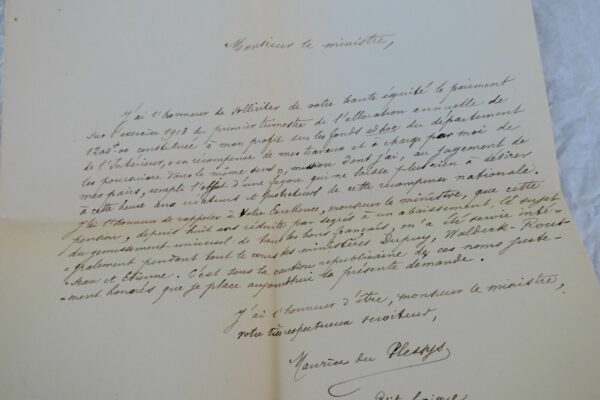 Monsieur le ministre,
J'ai l'honneur de solliciter de votre haute équité le paiement
sur l'exercice 1913 du premier trimestre de l'allocation annuelle de
1200f00 constituée à mon profit sur les fonds adhoc du département
de l'Intérieur, en récompense de mes travaux et à charge par moi de
les poursuivre dans le même sens, mission dont j'ai, au jugement de
mes pairs, rempli l'objet d'une façon qui ne laisse plus rien à désirer
à cette heure aux créateurs et protecteurs de cette récompense nationale.
J'ai l'honneur de rappeler à Votre Excellence, monsieur le ministre, que cette
pension, depuis huit ans réduite par degrés à un abaissement, le sujet
du gémissement universel de tous les bons français, m'a été servie inté-
-gralement pendant tout le cours des ministères Dupuy, Waldeck-Rous-
-seau et Etienne. C'est sous la caution républicaine de ces noms juste-
-ment honorés que je place aujourd'hui la présente demande.
J'ai l'honneur d'être, monsieur le ministre,
votre très respectueux serviteur,
Maurice du Plessys